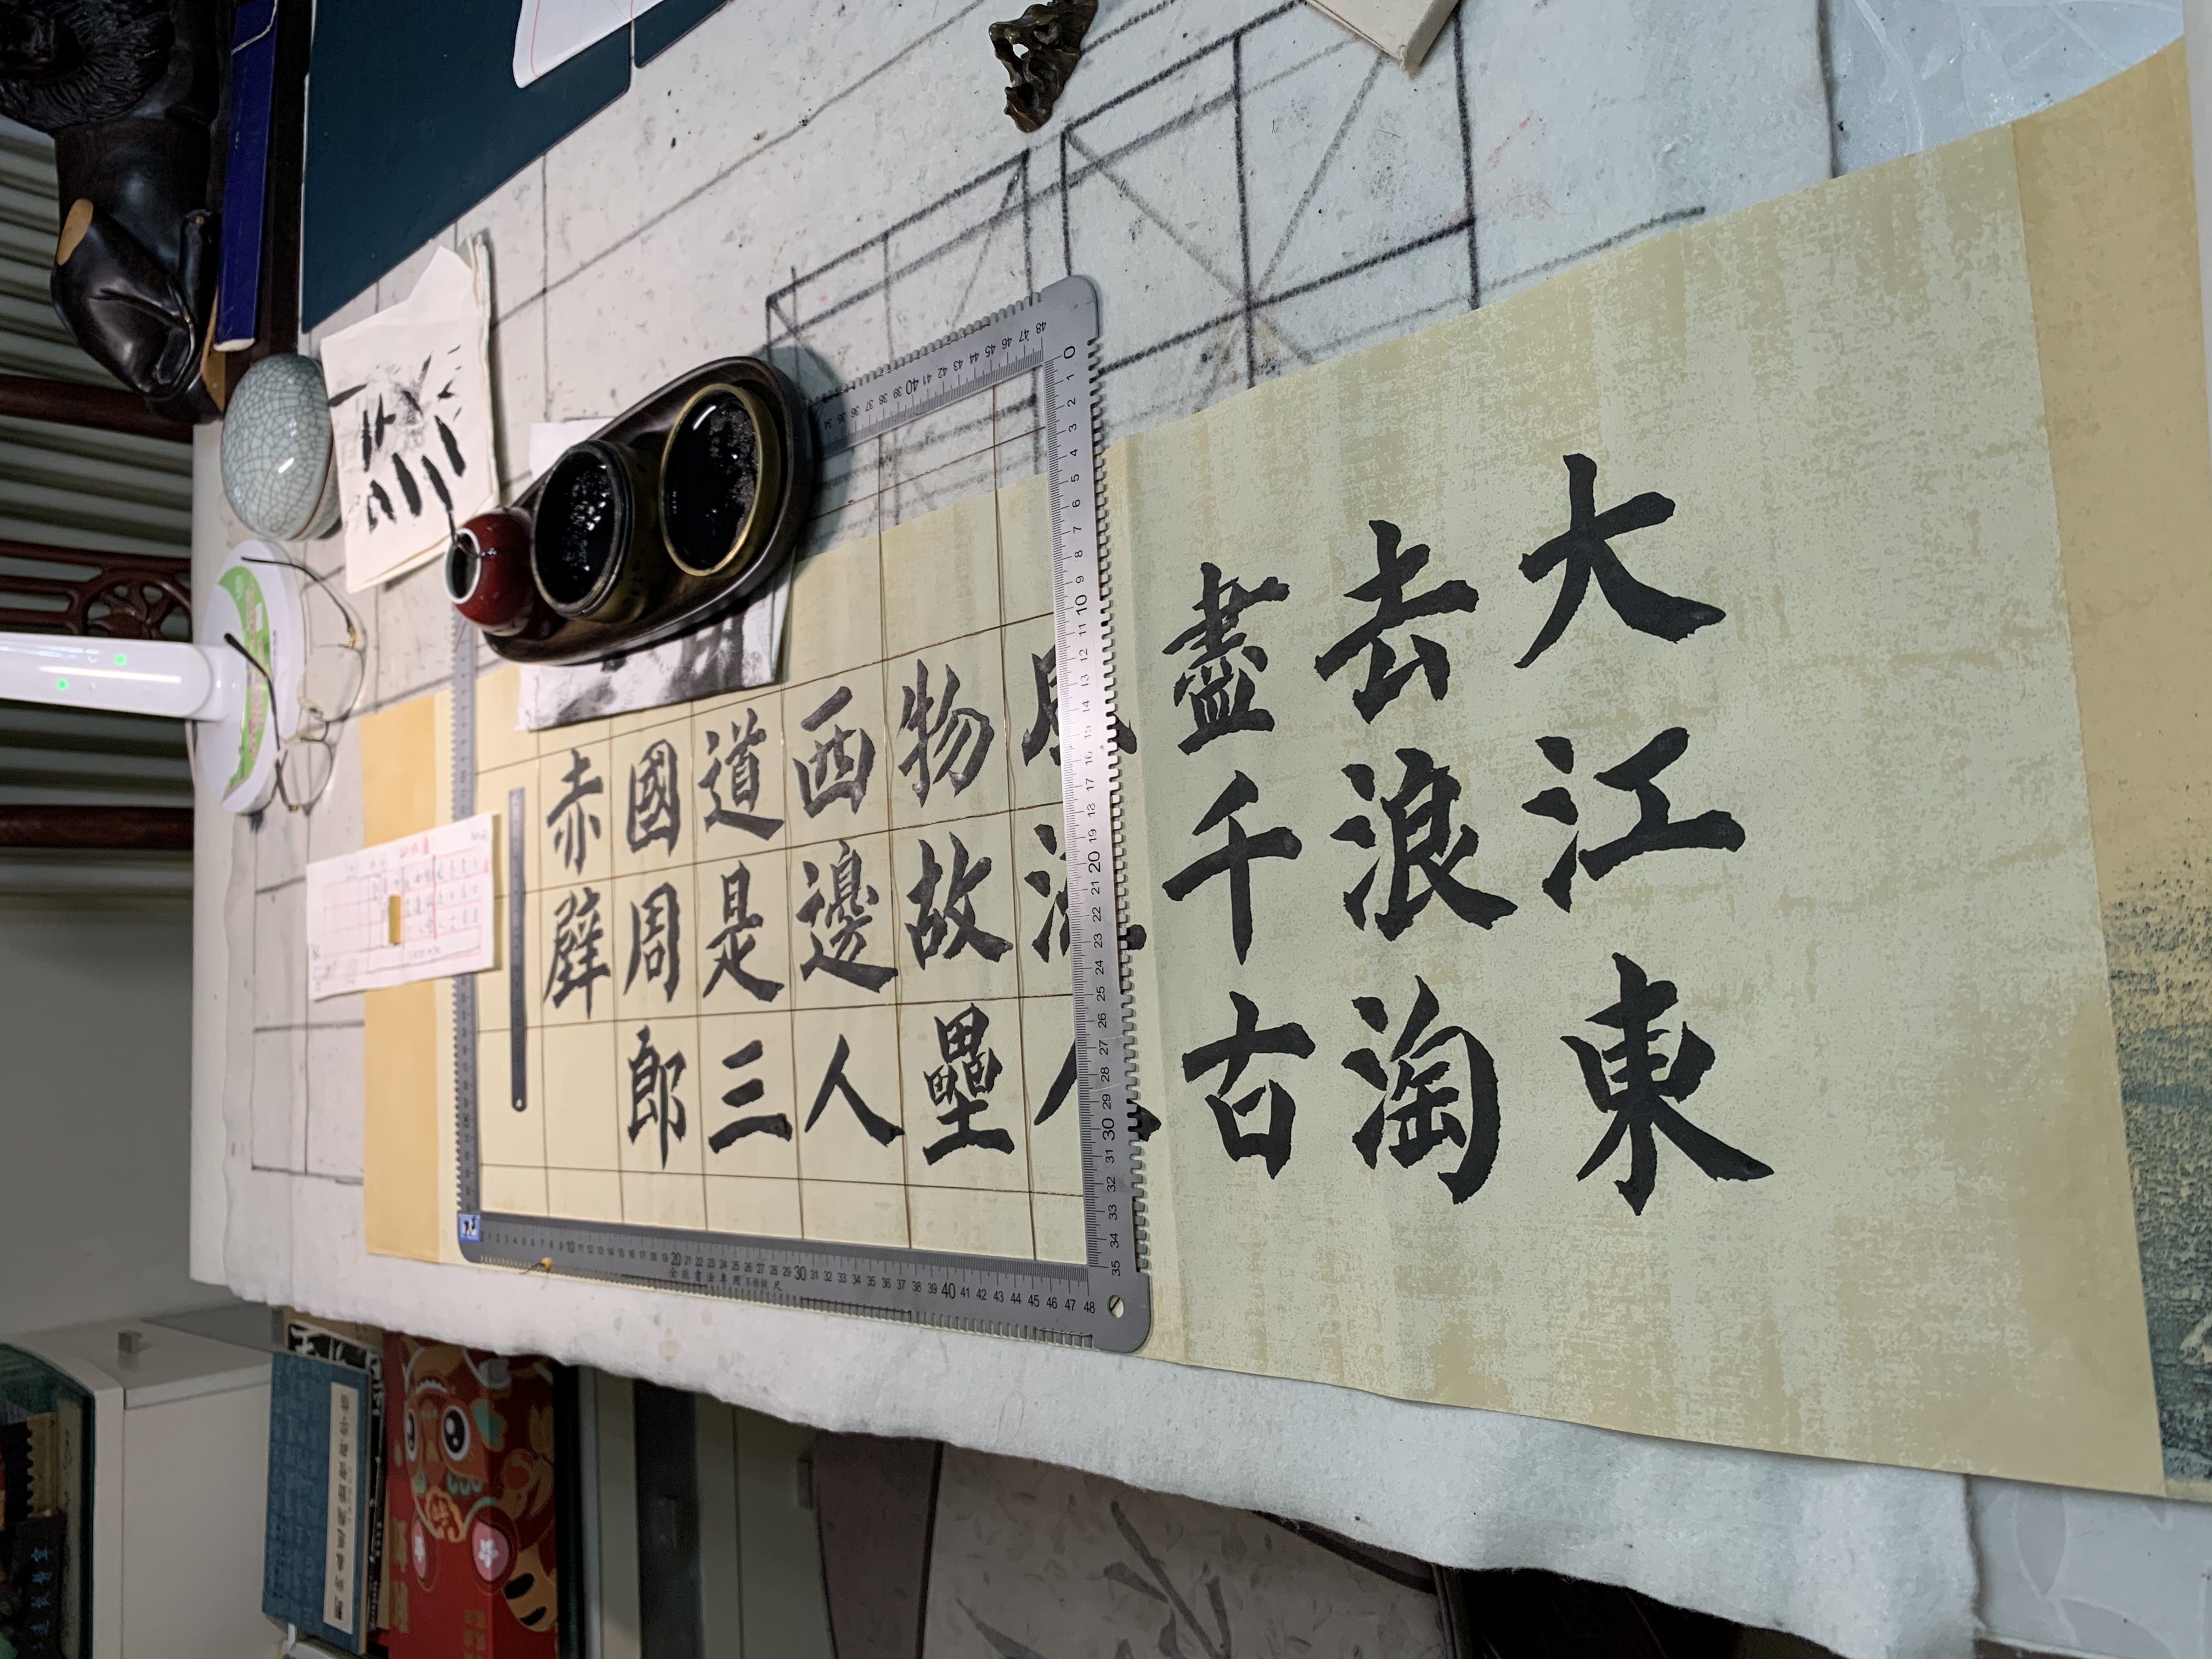 大江東
去浪淘
盡千古
風流人
物故壘
西邊人
道是三
國周郎
赤壁